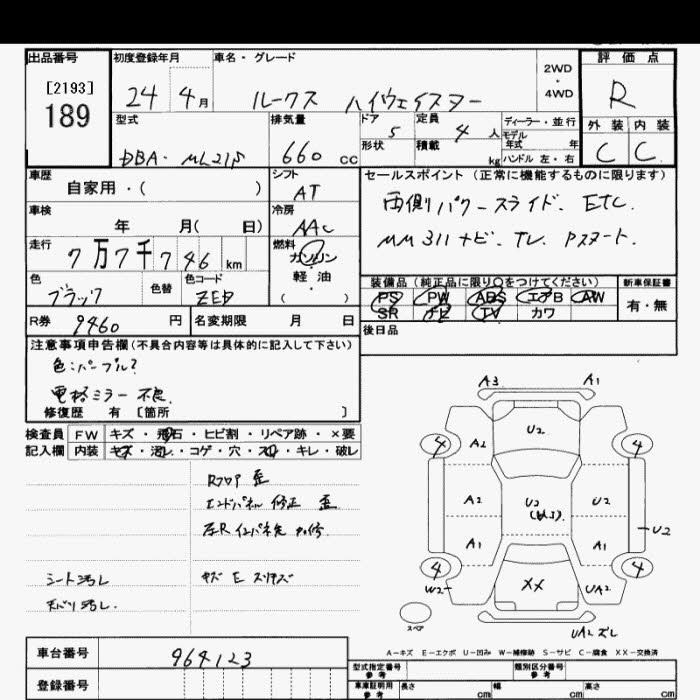 出品番号
[2193]
189
初度登録年月
24年 4月
車名・グレード
ルークス ハイウェイスター
2WD
・
4WD
評価点
R
外装 内装
C C
型式
DBA-ML21S
排気量
660 cc
ドア 5
形状
定員 4人
積載 kg
ディーラー・並行
モデル年式 年
ハンドル 左・右
車歴
自家用・( )
シフト
AT
車検
年 月( 日)
冷房
AAC
走行
7万7千746 km
燃料
ガソリン
軽・油
( )
色
ブラック
色替
色コード
ZED
R券 9460 円
名変期限 月 日
セールスポイント (正常に機能するものに限ります)
両側パワースライド、ETC
MM311ナビ、TV、Pスタート
装備品 (純正品に限り○をつけてください)
PS PW ABS エアB AW
SR ナビ TV カワ
新車保証書
有・無
後日品
注意事項申告欄(不具合内容等は具体的に記入して下さい)
色:パープル?
電格ミラー不良
修復歴 有 [箇所 ]
検査員 FW キズ・飛石・ヒビ割・リペア跡・×要
記入欄 内装 キズ・汚レ・コゲ・穴・スレ・キレ・破レ
Rフロア 歪
エンドパネル 修正 歪
左Rインパネ先 交修
シート汚レ
キズ E スリキズ
天バリ汚レ
A3 A1
U2
4 A2 4
A2 U2 U2
A1 A1 U2
4 XX 4
W2 UA2
スペア
UA2 ズレ
A-キズ E-エクボ U-凹み W-補修跡 S-サビ C-腐食 XX-交換済
車台番号 964123
登録番号
型式指定番号
参考
類別区分番号
参考
車庫証明用
参考
長さ cm 幅 cm 高さ cm